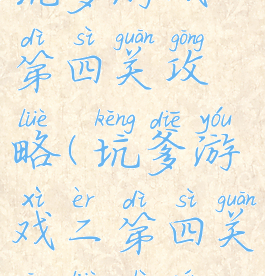 dì sì guān gōng
第四关攻
lüè kēng diē yóu
略(坑爹游
xì èr dì sì guān
戏二第四关